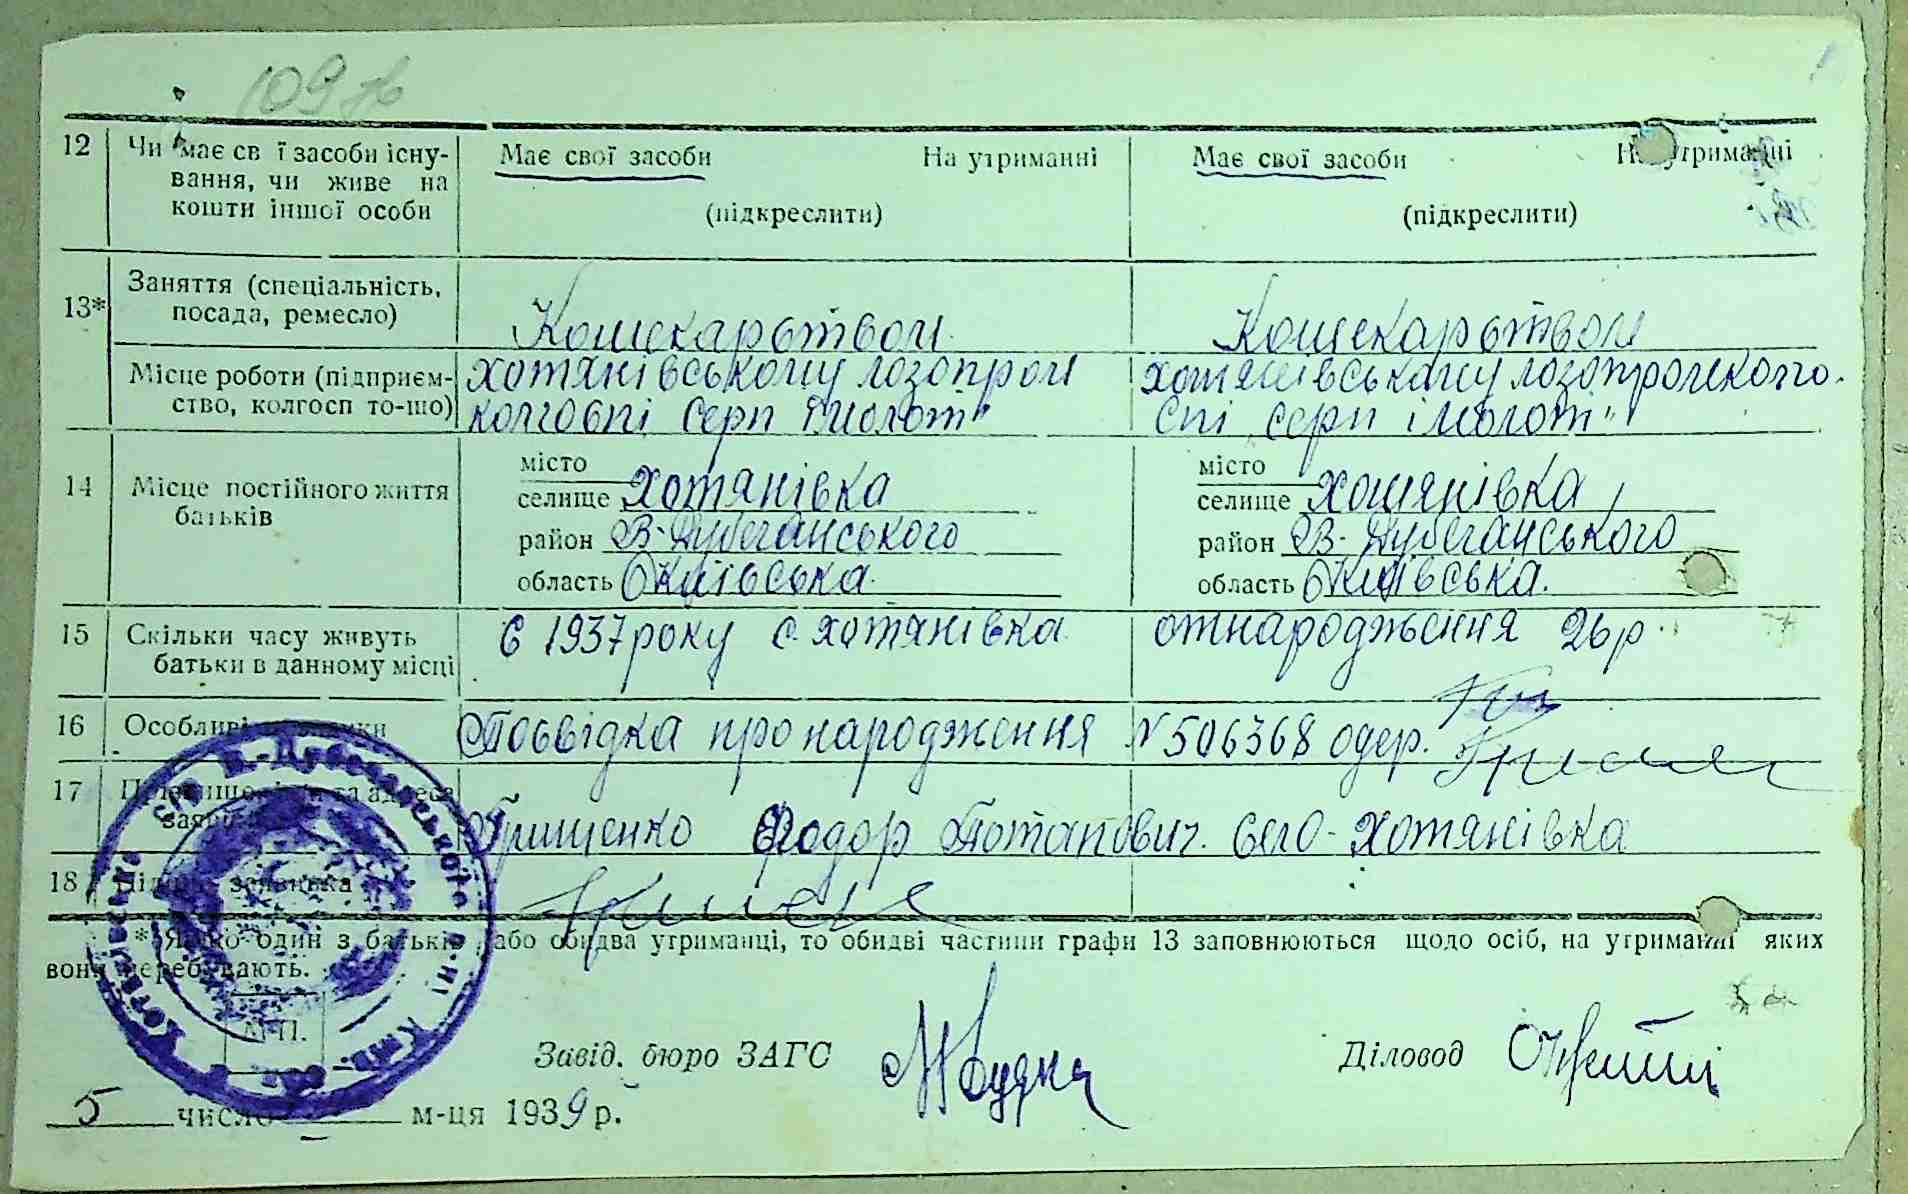 109
12 Чи має св ї засоби існу- Має свої засоби На утриманні Має свої засоби На утриманні
вання, чи живе на
кошти іншої особи (підкреслити) (підкреслити)
13* Заняття (спеціальність,
посада, ремесло) Кошекарством Кошекарством
Місце роботи (підприєм- хотянівському лозопром хотянівському лозопромколго-
ство, колгосп то-що) колгоспі Серп і молот" спі „серп і молот"
14 Місце постійного життя
батьків
місто місто
селище Хотянівка селище Хотянівка
район В-Дубечанського район В-Дубечанського
область Київська. область Київська.
15 Скільки часу живуть с 1937 року с. хотянівка отнародження 26 р.
батьки в данному місці
16 Особливі Посвідка про народження № 506368 одер.
17 та адреса
Грищенко Федор Потапович. село-Хотянівка
18
* Якщо один з батьків, або обидва утриманці, то обидві частини графи 13 заповнюються щодо осіб, на утриманні яких
вони перебувають.
М.П.
Завід. бюро ЗАГС Діловод
5 число м-ця 1939 р.